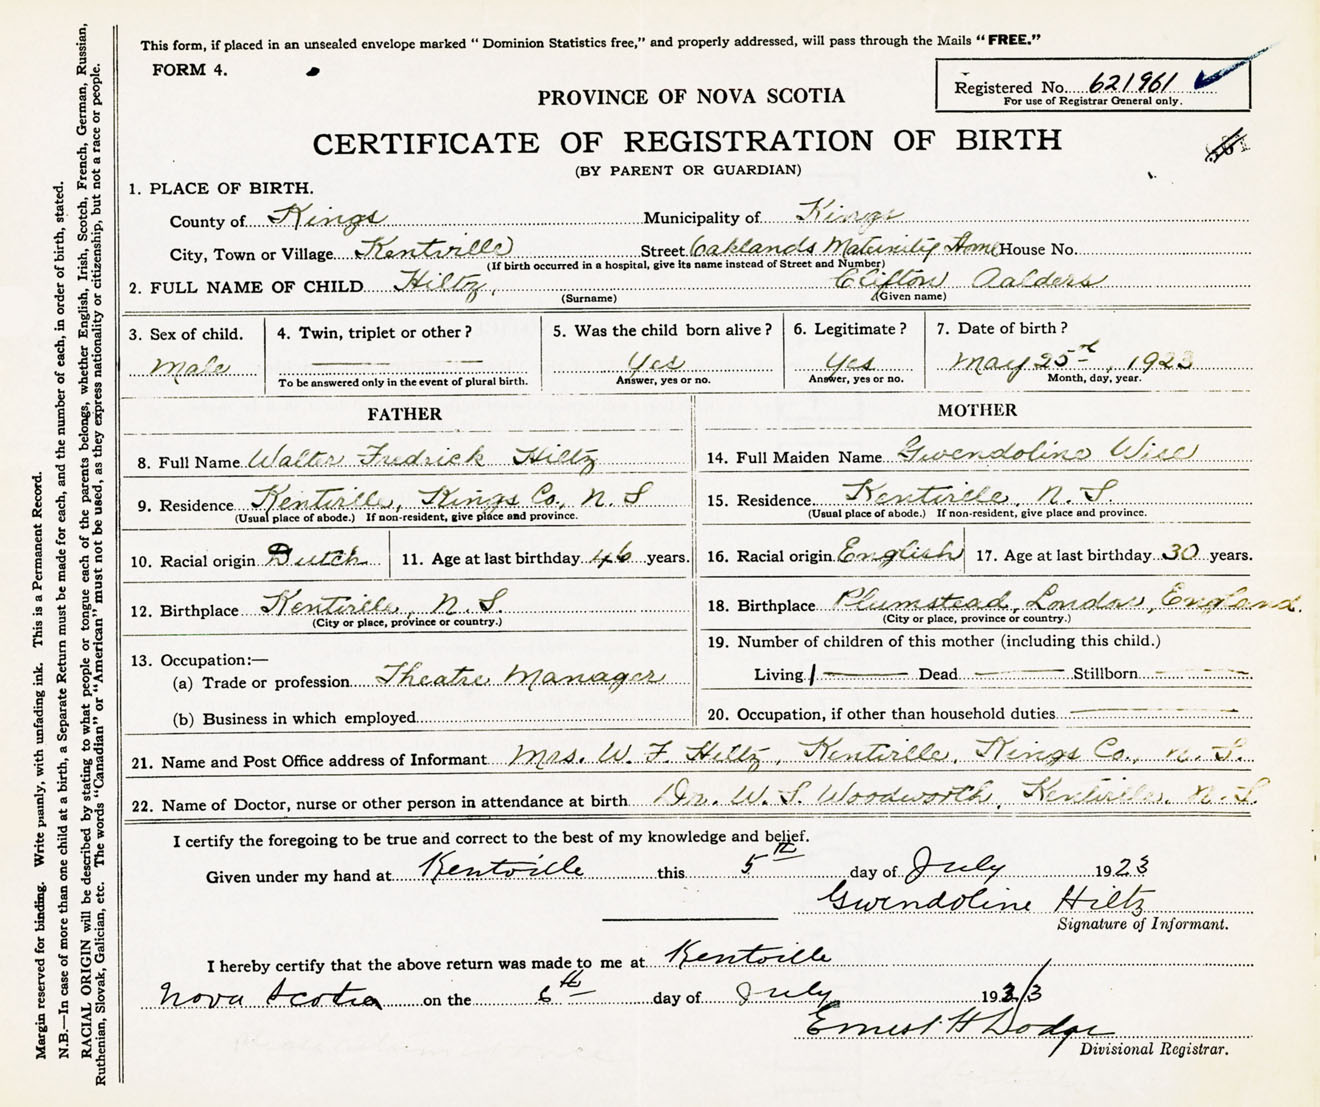 This form, if placed in an unsealed envelope marked " Dominion Statistics free," and properly addressed, will pass through the Mails "FREE."
FORM 4.
Registered No. 621961
For use of Registrar General only.
PROVINCE OF NOVA SCOTIA
CERTIFICATE OF REGISTRATION OF BIRTH
(BY PARENT OR GUARDIAN)
1. PLACE OF BIRTH.
County of Kings Municipality of Kings
City, Town or Village Kentville Street Oaklands Maternity Home House No.
(If birth occurred in a hospital, give its name instead of Street and Number)
2. FULL NAME OF CHILD Hiltz, Clifton Aalders
(Surname) (Given name)
3. Sex of child. 4. Twin, triplet or other ? 5. Was the child born alive ? 6. Legitimate ? 7. Date of birth ?
Male Yes Yes May 25th, 1923
To be answered only in the event of plural birth. Answer, yes or no. Answer, yes or no. Month, day, year.
FATHER MOTHER
8. Full Name Walter Fredrick Hiltz 14. Full Maiden Name Gwendoline Wise
9. Residence Kentville, Kings Co, N. S 15. Residence Kentville, N. S.
(Usual place of abode.) If non-resident, give place and province. (Usual place of abode.) If non-resident, give place and province.
10. Racial origin Dutch 11. Age at last birthday 46 years. 16. Racial origin English 17. Age at last birthday 30 years.
12. Birthplace Kentville, N. S. 18. Birthplace Plumstead, London, England.
(City or place, province or country.) (City or place, province or country.)
13. Occupation:— 19. Number of children of this mother (including this child.)
(a) Trade or profession Theatre Manager Living 1 Dead Stillborn
(b) Business in which employed 20. Occupation, if other than household duties
21. Name and Post Office address of Informant Mrs. W. F. Hiltz, Kentville, Kings Co., N. S.
22. Name of Doctor, nurse or other person in attendance at birth Dr. W. S. Woodworth, Kentville, N. S.
I certify the foregoing to be true and correct to the best of my knowledge and belief.
Given under my hand at Kentville this 5th day of July 1923
Gwendoline Hiltz
Signature of Informant.
I hereby certify that the above return was made to me at Kentville
Nova Scotia on the 6th day of July 1923
Ernest H Dodge
Divisional Registrar.
Margin reserved for binding. Write plainly, with unfading ink. This is a Permanent Record.
N.B.—In case of more than one child at a birth, a Separate Return must be made for each, and the number of each, in order of birth, stated.
RACIAL ORIGIN will be described by stating to what people or tongue each of the parents belongs, whether English, Irish, Scotch, French, German, Russian,
Ruthenian, Slovak, Galician, etc. The words "Canadian" or "American" must not be used, as they express nationality or citizenship, but not a race or people.